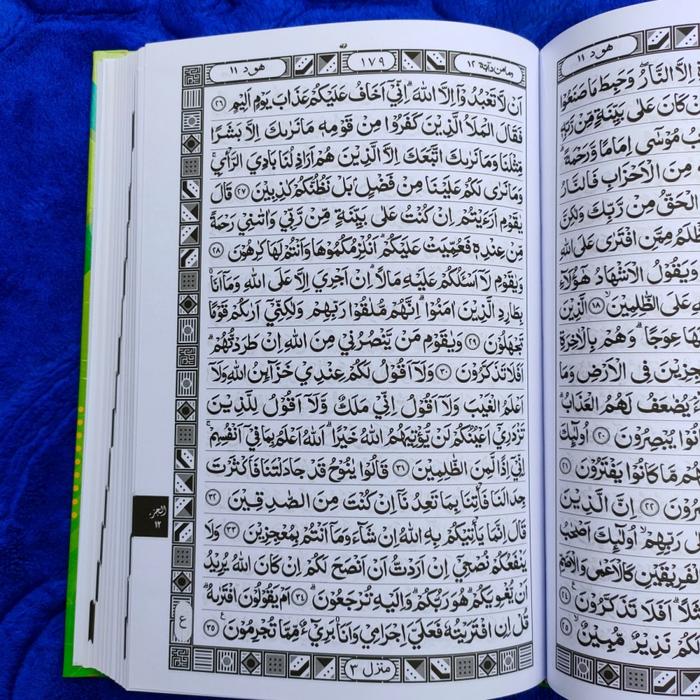 هود ١١
وما من دآبة ١٢
١٧٩
هود ١١
اَنْ لَّا تَعْبُدُوْٓا اِلَّا اللّٰهَ ۗاِنِّيْٓ اَخَافُ عَلَيْكُمْ عَذَابَ يَوْمٍ اَلِيْمٍ ﴿٢٦﴾
فَقَالَ الْمَلَاُ الَّذِيْنَ كَفَرُوْا مِنْ قَوْمِهٖ مَا نَرٰىكَ اِلَّا بَشَرًا
مِّثْلَنَا وَمَا نَرٰىكَ اتَّبَعَكَ اِلَّا الَّذِيْنَ هُمْ اَرَاذِلُنَا بَادِيَ الرَّأْيِۚ
وَمَا نَرٰى لَكُمْ عَلَيْنَا مِنْ فَضْلٍۢ بَلْ نَظُنُّكُمْ كٰذِبِيْنَ ﴿٢٧﴾ قَالَ
يٰقَوْمِ اَرَءَيْتُمْ اِنْ كُنْتُ عَلٰى بَيِّنَةٍ مِّنْ رَّبِّيْ وَاٰتٰىنِيْ رَحْمَةً
مِّنْ عِنْدِهٖ فَعُمِّيَتْ عَلَيْكُمْۗ اَنُلْزِمُكُمُوْهَا وَاَنْتُمْ لَهَا كٰرِهُوْنَ ﴿٢٨﴾
وَيٰقَوْمِ لَآ اَسْـَٔلُكُمْ عَلَيْهِ مَالًاۗ اِنْ اَجْرِيَ اِلَّا عَلَى اللّٰهِ وَمَآ اَنَا۠
بِطَارِدِ الَّذِيْنَ اٰمَنُوْاۗ اِنَّهُمْ مُّلٰقُوْا رَبِّهِمْ وَلٰكِنِّيْٓ اَرٰىكُمْ قَوْمًا
تَجْهَلُوْنَ ﴿٢٩﴾ وَيٰقَوْمِ مَنْ يَّنْصُرُنِيْ مِنَ اللّٰهِ اِنْ طَرَدْتُّهُمْۗ
اَفَلَا تَذَكَّرُوْنَ ﴿٣٠﴾ وَلَآ اَقُوْلُ لَكُمْ عِنْدِيْ خَزَاۤىِٕنُ اللّٰهِ وَلَآ
اَعْلَمُ الْغَيْبَ وَلَآ اَقُوْلُ اِنِّيْ مَلَكٌ وَّلَآ اَقُوْلُ لِلَّذِيْنَ
تَزْدَرِيْٓ اَعْيُنُكُمْ لَنْ يُّؤْتِيَهُمُ اللّٰهُ خَيْرًاۗ اَللّٰهُ اَعْلَمُ بِمَا فِيْٓ اَنْفُسِهِمْۚ
اِنِّيْٓ اِذًا لَّمِنَ الظّٰلِمِيْنَ ﴿٣١﴾ قَالُوْا يٰنُوْحُ قَدْ جَادَلْتَنَا فَاَكْثَرْتَ
جِدَالَنَا فَأْتِنَا بِمَا تَعِدُنَآ اِنْ كُنْتَ مِنَ الصّٰدِقِيْنَ ﴿٣٢﴾
قَالَ اِنَّمَا يَأْتِيْكُمْ بِهِ اللّٰهُ اِنْ شَاۤءَ وَمَآ اَنْتُمْ بِمُعْجِزِيْنَ ﴿٣٣﴾ وَلَا
يَنْفَعُكُمْ نُصْحِيْٓ اِنْ اَرَدْتُّ اَنْ اَنْصَحَ لَكُمْ اِنْ كَانَ اللّٰهُ يُرِيْدُ
اَنْ يُّغْوِيَكُمْۗ هُوَ رَبُّكُمْۗ وَاِلَيْهِ تُرْجَعُوْنَ ﴿٣٤﴾ اَمْ يَقُوْلُوْنَ افْتَرٰىهُۗ
قُلْ اِنِ افْتَرَيْتُهٗ فَعَلَيَّ اِجْرَامِيْ وَاَنَا۠ بَرِيْۤءٌ مِّمَّا تُجْرِمُوْنَ ﴿٣٥﴾
الجزء
١٢
ع
منزل ٣
اِلَّا النَّارُ وَحَبِطَ مَا صَنَعُوْا
كَانَ عَلٰى بَيِّنَةٍ مِّنْ رَّبِّهٖ
مُوْسٰٓى اِمَامًا وَّرَحْمَةً
مِنَ الْاَحْزَابِ فَالنَّارُ
الْحَقُّ مِنْ رَّبِّكَ وَلٰكِنَّ
اَظْلَمُ مِمَّنِ افْتَرٰى عَلَى اللّٰهِ
وَيَقُوْلُ الْاَشْهَادُ هٰٓؤُلَاۤءِ
عَلَى الظّٰلِمِيْنَ ﴿١٨﴾ الَّذِيْنَ
عِوَجًاۗ وَهُمْ بِالْاٰخِرَةِ
مُعْجِزِيْنَ فِى الْاَرْضِ وَمَا
يُضٰعَفُ لَهُمُ الْعَذَابُ
كَانُوْا يُبْصِرُوْنَ ﴿٢٠﴾ اُولٰۤىِٕكَ
مَّا كَانُوْا يَفْتَرُوْنَ ﴿٢١﴾
﴿٢٢﴾ اِنَّ الَّذِيْنَ
اِلٰى رَبِّهِمْ اُولٰۤىِٕكَ اَصْحٰبُ
الْفَرِيْقَيْنِ كَالْاَعْمٰى وَالْاَصَمِّ
اَفَلَا تَذَكَّرُوْنَ ﴿٢٤﴾
لَكُمْ نَذِيْرٌ مُّبِيْنٌ ﴿٢٥﴾